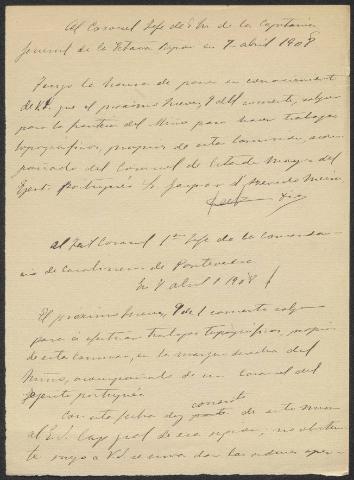 Al Coronel Jefe de E. M. de la Capitanía
General de la Octava Región en 7 abril 1908
Tengo la honra de poner en conocimiento
de V.S. que el próximo jueves, 9 del corriente, salgo
para la frontera del Miño para hacer trabajos
topográficos, propios de esta Comisión, acom-
pañado del Coronel de Estado Mayor del
Ejerto Portugués Sr Gaspar d'Azevedo Meira
Dios
Al Tent Coronel 1er Jefe de la Comandan-
cia de Carabineros de Pontevedra
En 7 abril 1908
El próximo jueves, 9 del corriente salgo
para á efectuar trabajos topográficos, propios
de esta Comisión, en la margen derecha del
Miño, acompañado de un Coronel del
Ejercito portugués
consta
Con esta fecha doy parte de este mismo
al E.S. Cap gral de esa región; no obstan-
te ruego á V.S. se sirva dar las ordenes opor-